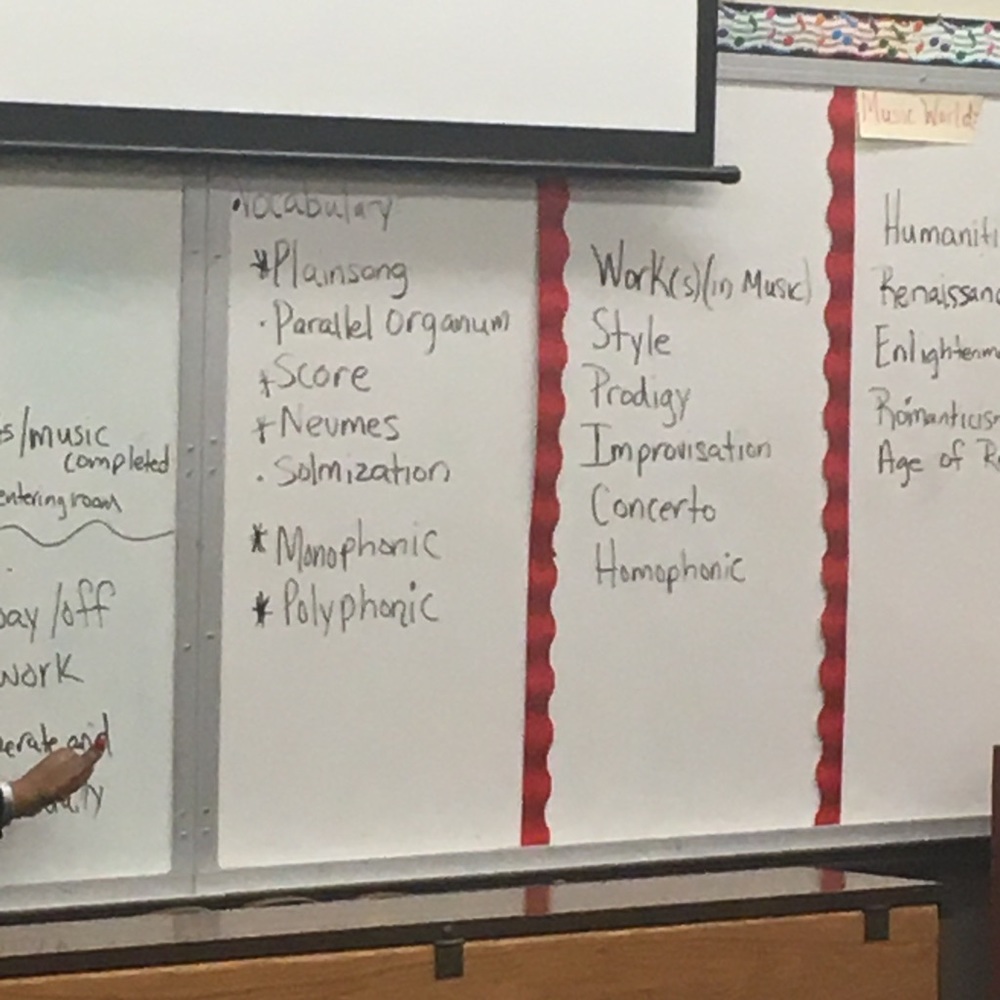 s/music
completed
entering room
/off
work
and
Vocabulary
*Plainsong
· Parallel Organum
+Score
+Neumes
· Solmization
* Monophonic
* Polyphonic
Work(s)(in Music)
Style
Prodigy
Improvisation
Concerto
Homophonic
Music World:
Humaniti
Renaissanc
Enlightenm
Romanticis
Age of R